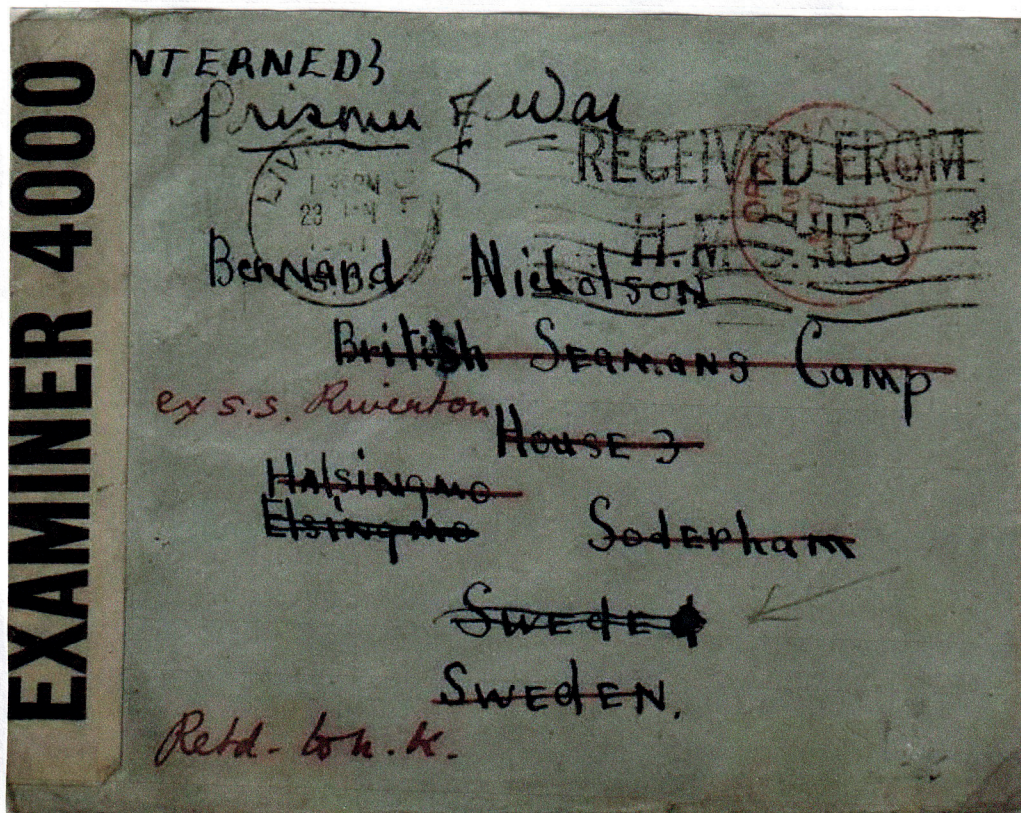 EXAMINER 4000
NTERNED}
Prisoner of War
RECEIVED FROM
H.M. SHIPS
LIV
23 JAN
Bernard Nicholson
British Seamans Camp
ex s.s. Riverton
House 3
Halsingmo
Elsingmo Soderham
Sweden
Sweden.
Retd. to u.k.